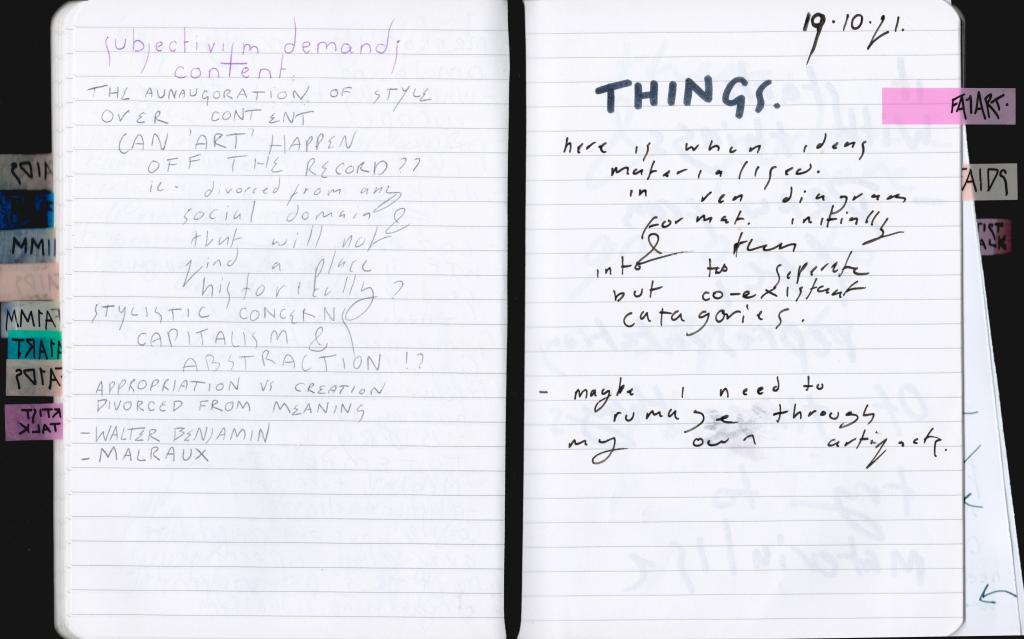 subjectivism demands
content.
THE AUNAUGORATION OF STYLE
OVER CONTENT
CAN 'ART' HAPPEN
OFF THE RECORD??
ie. divorced from any
social domain &
that will not
find a place
historically?
STYLISTIC CONCERN
CAPITALISM &
ABSTRACTION !?
APPROPRIATION VS CREATION
DIVORCED FROM MEANING
-WALTER BENJAMIN
- MALRAUX
19.10.21.
THINGS.
here is when ideas
materialised.
in ven diagram
format. initially
& then
into to seperate
but co-existant
catagories.
- maybe I need to
rumage through
my own artifacts.
FA1ART.
AIDS
TIST
ALK
FA1DS
MMI
FA1MM
FA1ART
FA1DS
ARTIST
TALK